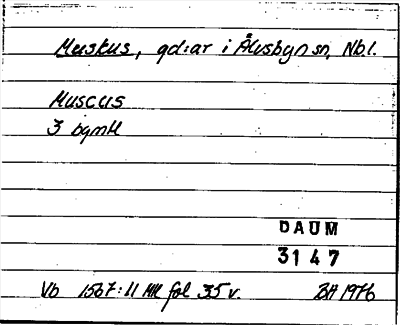 Muskus, gd:ar i Älvsbyn sn, Nbl.
Muscus
3 bymk
DAUM
3147
Vb 1567:11 HH fol 35 v.
BH 1976